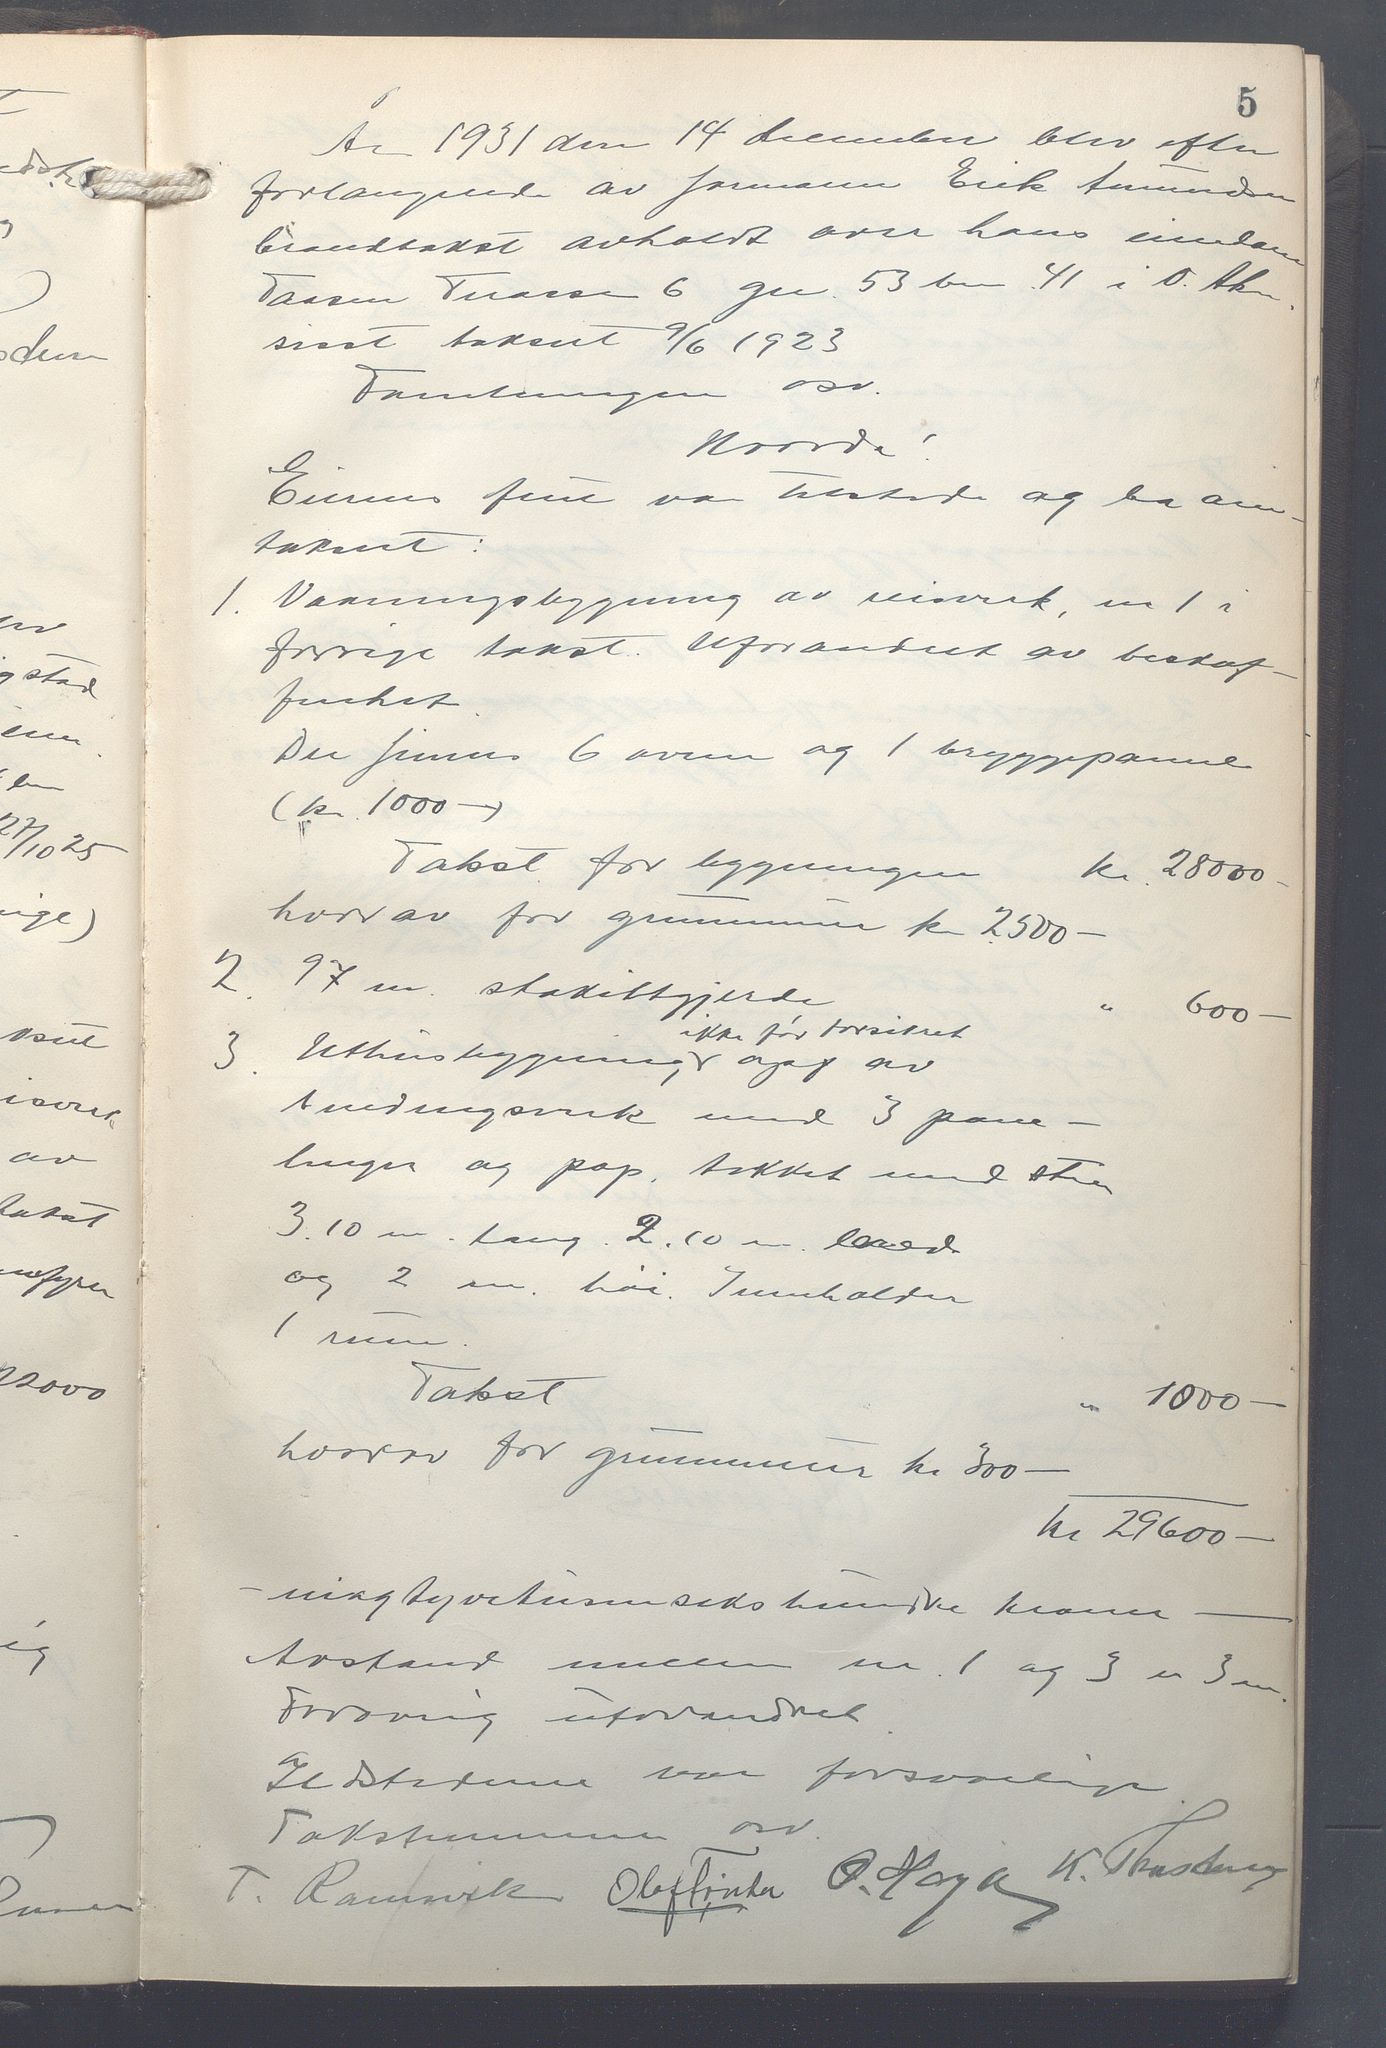 5
År 1931 den 14 desember blev efter
forlangende av formann Erik Amundsen
brandtakst avholdt over hans eiendom
Taasen Terasse 6 gnr. 53 bnr. 41 i V. Aker.
sisst taksert 9/6 1923
Forretningen osv.
Hvorda!
Eierens frue var tilstede og ba om
taksert:
1. Vaaningsbygning av reisverk, nr 1 i
forrige takst. Uforandret av beskaf-
fenhet.
Der finnes 6 ovner og 1 bryggepanne
(kr. 1000 —)
Takst for bygningen kr. 28000 -
hvorav for grunnmur kr 2500 —
2. 97 m. stakittgjerde " 600 —
3. Uthusbygning, ikke før forsikret av
bindingsverk med 3 pane-
linger og pap. tekket med sten
3.10 m. lang. 2.10 m. bred
og 2 m. høi. Inneholder
1 rum.
Takst " 1000 —
hvorav for grunnmur kr 300 —
kr 29600 —
- niogtyvetusensekshundre kroner —
Avstand mellem nr. 1 og 3 er 3 m.
Forøvrig uforandret.
Ildstedene var forsvarlige.
Takstsummen osv.
T. Ramsvik Olaf O. Høy K.
27/10 25
22000
takst
av